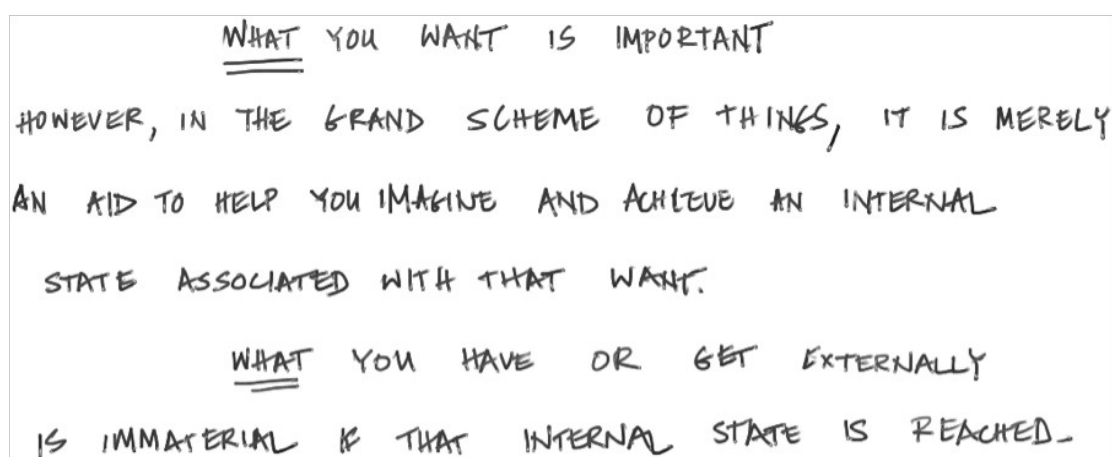 WHAT YOU WANT IS IMPORTANT
HOWEVER, IN THE GRAND SCHEME OF THINGS, IT IS MERELY
AN AID TO HELP YOU IMAGINE AND ACHIEVE AN INTERNAL
STATE ASSOCIATED WITH THAT WANT.
WHAT YOU HAVE OR GET EXTERNALLY
IS IMMATERIAL IF THAT INTERNAL STATE IS REACHED_